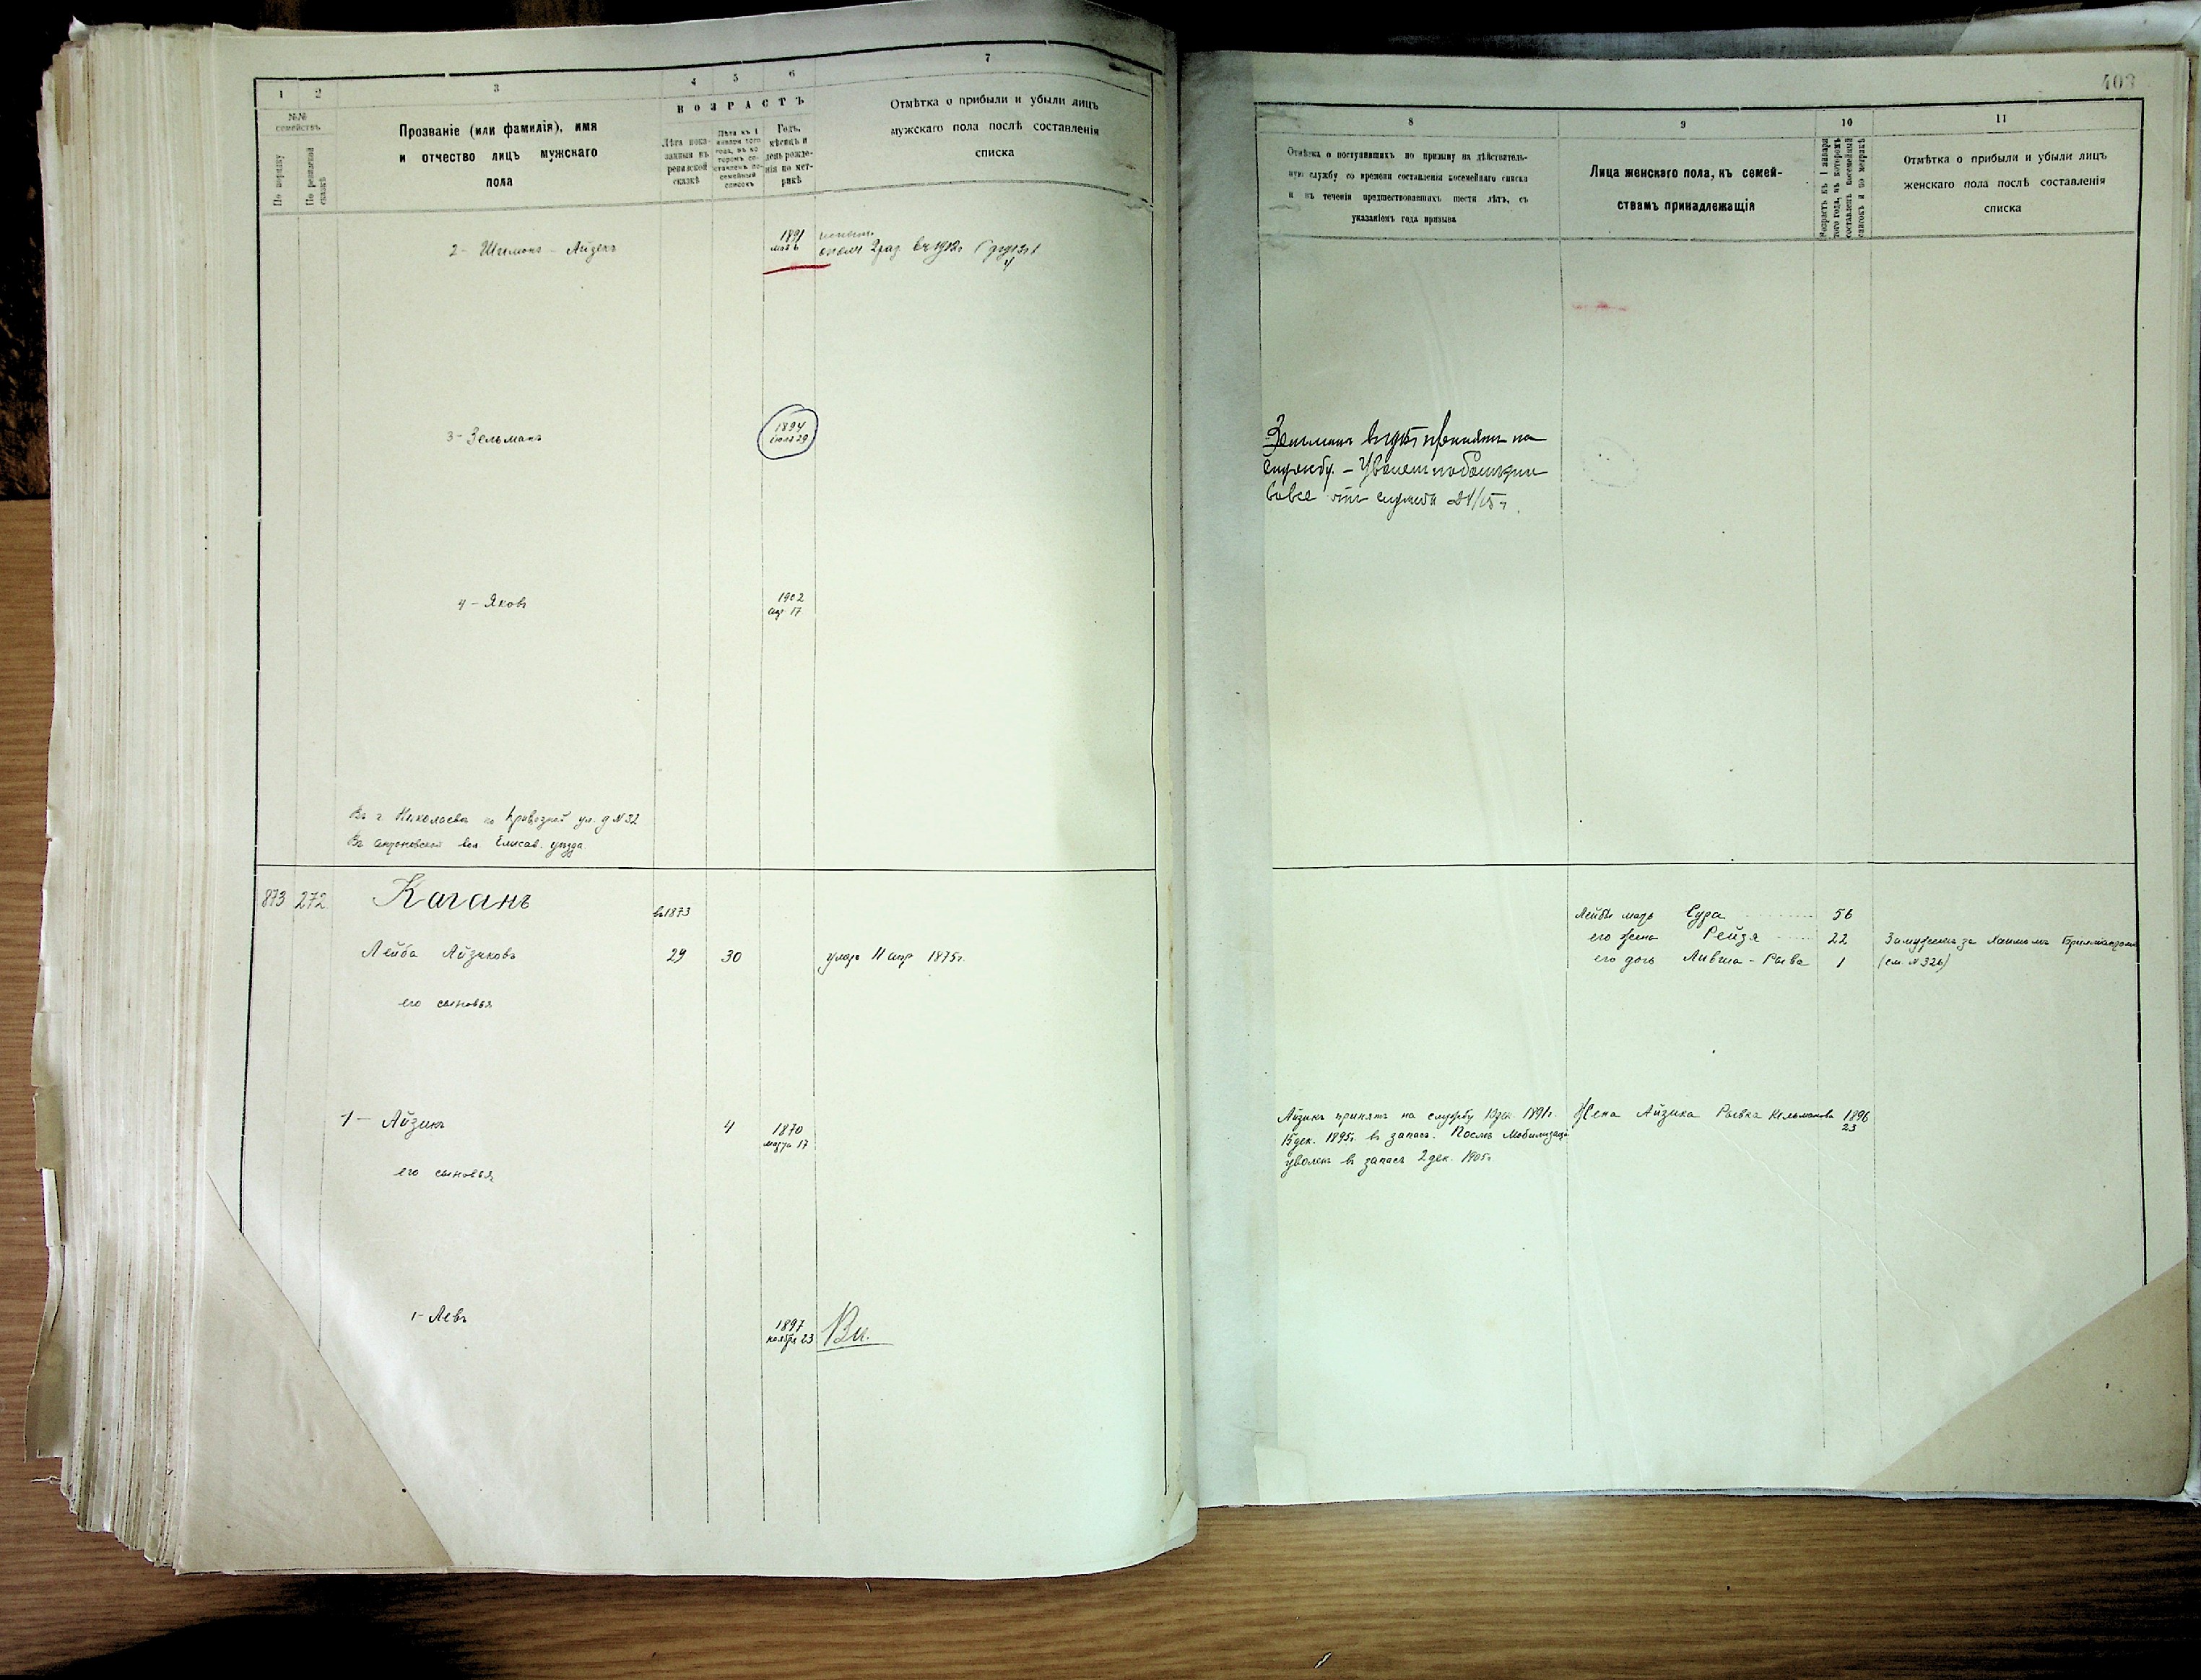 1 2 3 4 5 6 7
№№ семействъ
По порядку
По ревизской сказкѣ
Прозваніе (или фамилія), имя
и отчество лицъ мужскаго
пола
ВОЗРАСТЪ
Лѣта пока-
занныя въ
ревизской
сказкѣ
Лѣта къ 1
января того
года, въ ко-
торомъ со-
ставленъ по-
семейный
списокъ
Годъ,
мѣсяцъ и
день рожде-
нія по мет-
рикѣ
Отмѣтка о прибыли и убыли лицъ
мужскаго пола послѣ составленія
списка
2- Шлемонъ - Айзекъ
1891
3- Зельманъ
1894
іюля 29
4- Яковъ
1902
апр 17
Въ г Николаевѣ по Привозной ул. д N 32
вол Елисав. уѣзда
873 272 Каганъ
въ 1873
Лейба Айзиковъ 29 30 умеръ 11 апр 1875г.
его сыновья
1- Айзикъ 4 1870
марта 17
его сыновья
1- Левъ 1897
ноября 23
403
8 9 10 11
Отмѣтка о поступившихъ по призыву на дѣйствитель-
ную службу со времени составленія посемейнаго списка
и въ теченіи предшествовавшихъ шести лѣтъ, съ
указаніемъ года призыва
Лица женскаго пола, къ семей-
ствамъ принадлежащія
Возрастъ къ 1 января
того года, въ которомъ
составленъ посемейный
списокъ и по метрикѣ
Отмѣтка о прибыли и убыли лицъ
женскаго пола послѣ составленія
списка
Зельманъ принятъ на
службу. - Уволенъ
вовсе отъ службы
Лейбы мать Сура 56
его жена Рейзя 22 Замужемъ за Хаимомъ
его дочь Ливша - Рыва 1 (см N 326)
Айзикъ принятъ на службу 1891г. Жена Айзика Рывка Кельманова 1896
23
15 дек. 1895г. въ запасъ. Послѣ Мобилизаціи
уволенъ въ запасъ 2 дек. 1905г.